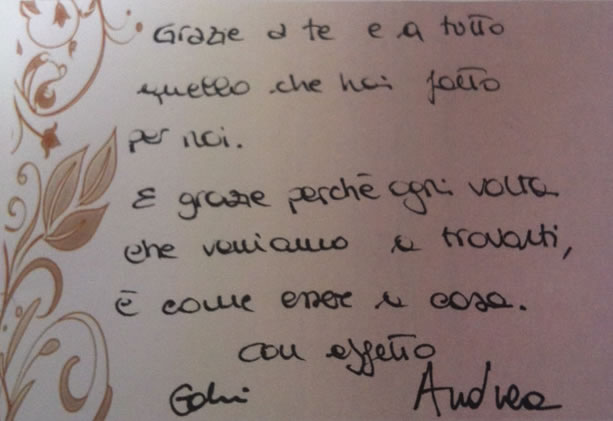 Grazie a te e a tutto
quello che hai fatto
per noi.
E grazie perchè ogni volta
che veniamo a trovarti,
è come essere a casa.
con affetto
Andrea